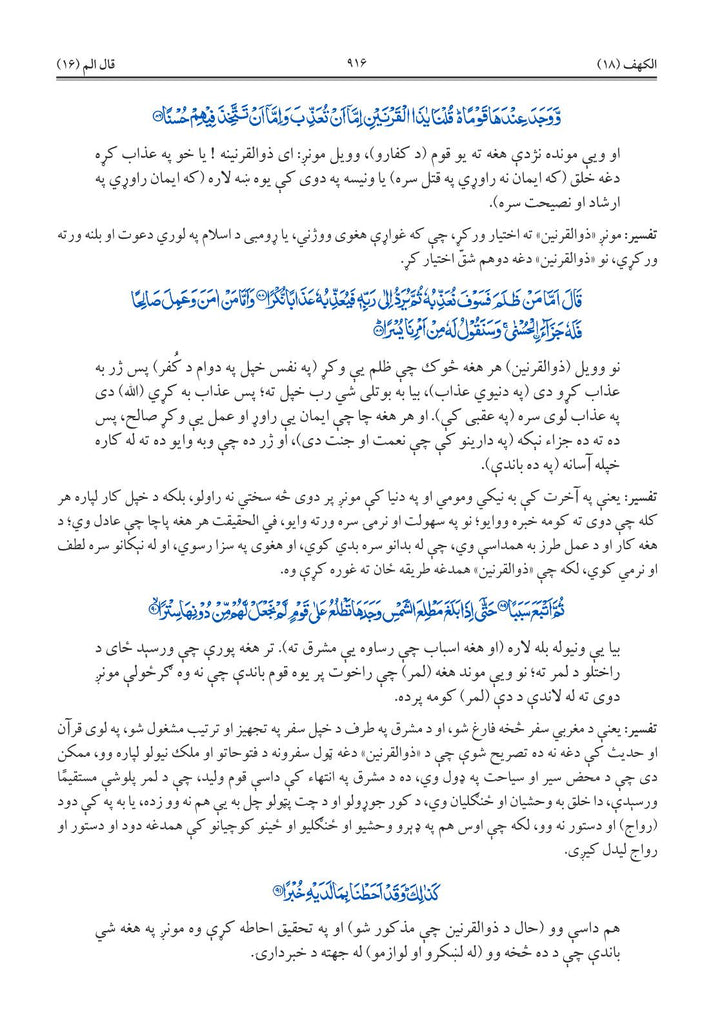 الكهف (۱۸) ۹۱۶ قال الم (۱۶)
وَّوَجَدَ عِنْدَهَا قَوْمًا ەۗ قُلْنَا يٰذَا الْقَرْنَيْنِ اِمَّآ اَنْ تُعَذِّبَ وَاِمَّآ اَنْ تَتَّخِذَ فِيْهِمْ حُسْنًا ۸۶
او ويې مونده نژدې هغه ته يو قوم (د كفارو)، وويل مونږ: ای ذوالقرنينه ! يا خو په عذاب كړه
دغه خلق (كه ايمان نه راوړي په قتل سره) يا ونيسه په دوی كې يوه ښه لاره (كه ايمان راوړي په
ارشاد او نصيحت سره).
تفسير: مونږ «ذوالقرنين» ته اختيار وركړ، چې كه غواړې هغوی ووژنې، يا ړومبی د اسلام په لوري دعوت او بلنه ورته
وركړې، نو «ذوالقرنين» دغه دوهم شقّ اختيار كړ.
قَالَ اَمَّا مَنْ ظَلَمَ فَسَوْفَ نُعَذِّبُهٗ ثُمَّ يُرَدُّ اِلٰى رَبِّهٖ فَيُعَذِّبُهٗ عَذَابًا نُّكْرًا ۸۷ وَاَمَّا مَنْ اٰمَنَ وَعَمِلَ صَالِحًا
فَلَهٗ جَزَآءَ ۨالْحُسْنٰى ۚ وَسَنَقُوْلُ لَهٗ مِنْ اَمْرِنَا يُسْرًا ۸۸
نو وويل (ذوالقرنين) هر هغه څوك چې ظلم يې وكړ (په نفس خپل په دوام د كُفر) پس ژر به
عذاب كړو دی (په دنيوي عذاب)، بيا به بوتلی شي رب خپل ته؛ پس عذاب به كړي (الله) دی
په عذاب لوی سره (په عقبی كې). او هر هغه چا چې ايمان يې راوړ او عمل يې وكړ صالح، پس
ده ته ده جزاء نېكه (په دارينو كې چې نعمت او جنت دی)، او ژر ده چې وبه وايو ده ته له كاره
خپله آسانه (په ده باندې).
تفسير: يعنې په آخرت كې به نيكي ومومي او په دنيا كې مونږ پر دوی څه سختي نه راولو، بلكه د خپل كار لپاره هر
كله چې دوی ته كومه خبره ووايو؛ نو په سهولت او نرمی سره ورته وايو، في الحقيقت هر هغه پاچا چې عادل وي؛ د
هغه كار او د عمل طرز به همداسې وي، چې له بدانو سره بدي كوي، او هغوی په سزا رسوي، او له نېكانو سره لطف
او نرمي كوي، لكه چې «ذوالقرنين» همدغه طريقه ځان ته غوره كړې وه.
ثُمَّ اَتْبَعَ سَبَبًا ۸۹ حَتّٰٓى اِذَا بَلَغَ مَطْلِعَ الشَّمْسِ وَجَدَهَا تَطْلُعُ عَلٰى قَوْمٍ لَّمْ نَجْعَلْ لَّهُمْ مِّنْ دُوْنِهَا سِتْرًا ۹۰
بيا يې ونيوله بله لاره (او هغه اسباب چې رساوه يې مشرق ته). تر هغه پورې چې ورسېد ځای د
راختلو د لمر ته؛ نو ويې موند هغه (لمر) چې راخوت پر يوه قوم باندې چې نه وه ګرځولې مونږ
دوی ته له لاندې د دې (لمر) كومه پرده.
تفسير: يعنې د مغربي سفر څخه فارغ شو، او د مشرق په طرف د خپل سفر په تجهيز او ترتيب مشغول شو، په لوی قرآن
او حديث كې دغه نه ده تصريح شوې چې د «ذوالقرنين» دغه ټول سفرونه د فتوحاتو او ملك نيولو لپاره وو، ممكن
دی چې د محض سير او سياحت په ډول وي، ده د مشرق په انتهاء كې داسې قوم وليد، چې د لمر پلوشې مستقيمًا
ورسېدې، دا خلق به وحشيان او ځنګليان وي، د كور جوړولو او د چت پټولو چل به يې هم نه وو زده، يا به په كې دود
(رواج) او دستور نه وو، لكه چې اوس هم په ډېرو وحشيو او ځنګليو او ځينو كوچيانو كې همدغه دود او دستور او
رواج ليدل كيږی.
كَذٰلِكَ ۗ وَقَدْ اَحَطْنَا بِمَا لَدَيْهِ خُبْرًا ۹۱
هم داسې وو (حال د ذوالقرنين چې مذكور شو) او په تحقيق احاطه كړې وه مونږ په هغه شي
باندې چې د ده څخه وو (له لښكرو او لوازمو) له جهته د خبردارۍ.